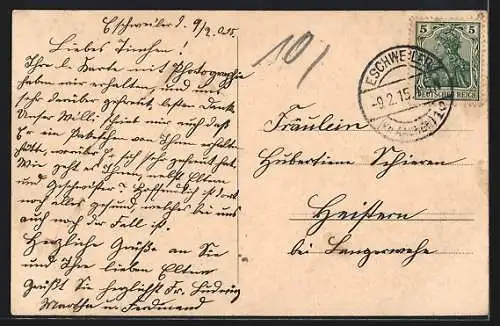 Eschweiler d. 9/2.015.
Liebes Tinchen!
Ihre l. Karte mit Photographie
haben wir erhalten, und uns
sehr darüber gefreut, besten Dank.
Unser Willi schreibt uns auch daß
Er ein Paketchen von Ihnen erhalten
hätte, worüber Er sich sehr gefreut hat.
Wie geht es Ihnen, nebst Eltern
und Geschwister? Hoffentlich ist dort
noch alles gesund, welches bei uns
auch noch der Fall ist.
Herzliche Grüße an Sie
und Ihre lieben Eltern
Grüßt Sie herzlichst Fr. Ludwig
Martha u. Ferdinand
10/
ESCHWEILER
-9.2.15
DEUTSCHES REICH
5 5
Fräulein
Hubertiene Schieren
Heistern
bei Langerwehe